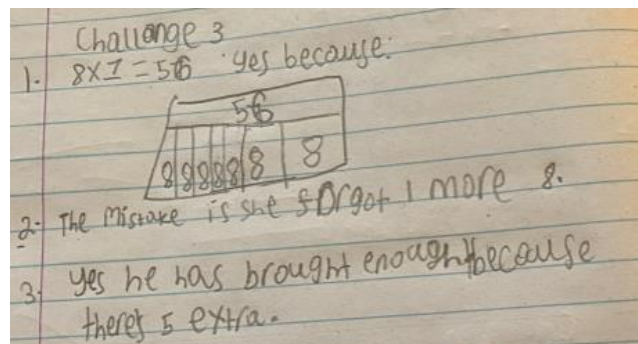 Challange 3
1. 8×7=56 yes because:
56
8 8 8 8 8 8 8
2. The mistake is she forgot 1 more 8.
3. yes he has brought enough because
there's 5 extra.